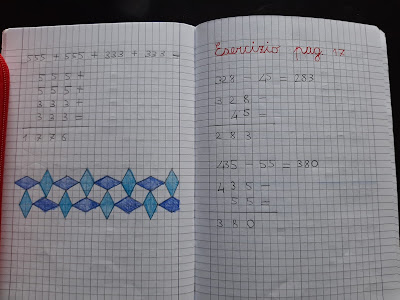 555 + 555 + 333 + 333 =
555+
555+
333+
333=
1776
Esercizio pag 17
328 - 45 = 283
328 -
45 =
283
435 - 55 = 380
435 -
55 =
380